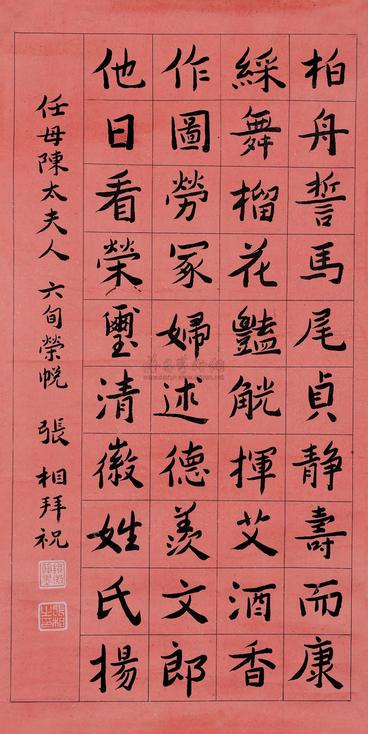 柏舟誓馬尾貞静壽而康
綵舞榴花豔觥揮艾酒香
作圖勞冢婦述德羨文郎
他日看榮璽清徽姓氏揚
任母陳太夫人 六旬榮帨 張相拜祝